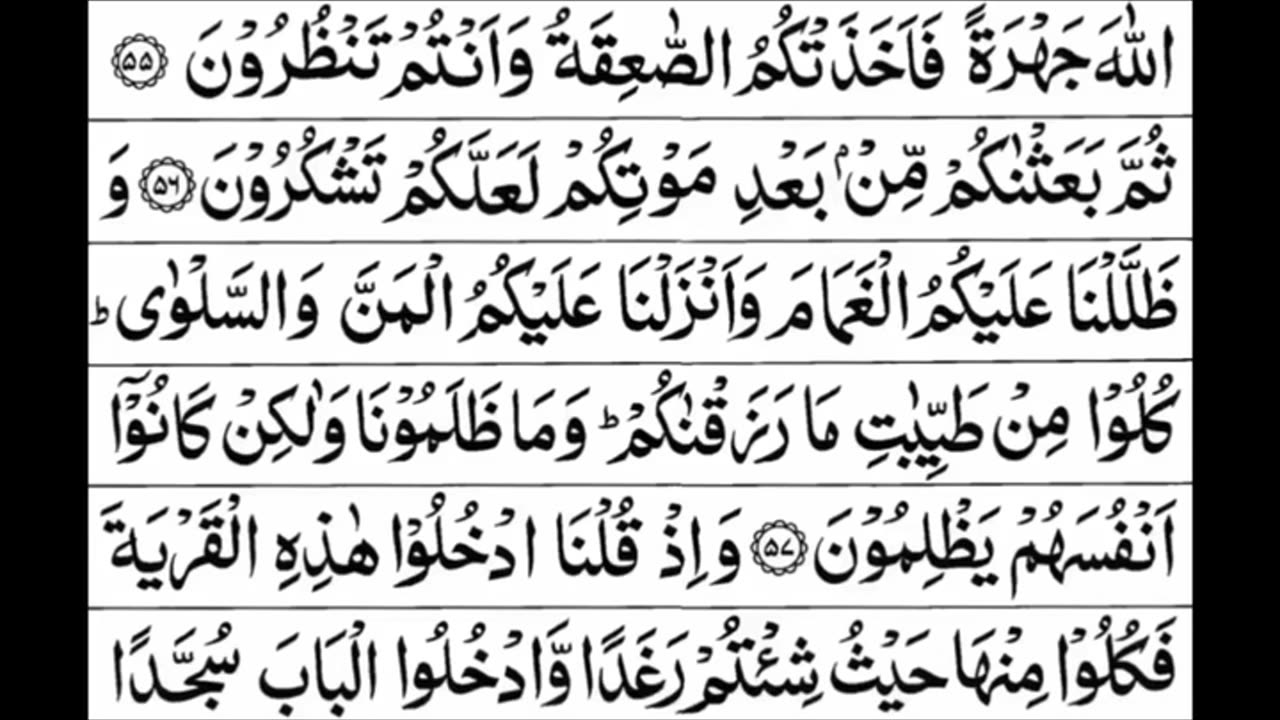 اللّٰهَ جَهْرَةً فَاَخَذَتْكُمُ الصّٰعِقَةُ وَاَنْتُمْ تَنْظُرُوْنَ ۝۵۵
ثُمَّ بَعَثْنٰكُمْ مِّنْۢ بَعْدِ مَوْتِكُمْ لَعَلَّكُمْ تَشْكُرُوْنَ ۝۵۶ وَ
ظَلَّلْنَا عَلَيْكُمُ الْغَمَامَ وَاَنْزَلْنَا عَلَيْكُمُ الْمَنَّ وَالسَّلْوٰى ؕ
كُلُوْا مِنْ طَيِّبٰتِ مَا رَزَقْنٰكُمْ ؕ وَمَا ظَلَمُوْنَا وَلٰكِنْ كَانُوْٓا
اَنْفُسَهُمْ يَظْلِمُوْنَ ۝۵۷ وَاِذْ قُلْنَا ادْخُلُوْا هٰذِهِ الْقَرْيَةَ
فَكُلُوْا مِنْهَا حَيْثُ شِئْتُمْ رَغَدًا وَّادْخُلُوا الْبَابَ سُجَّدًا